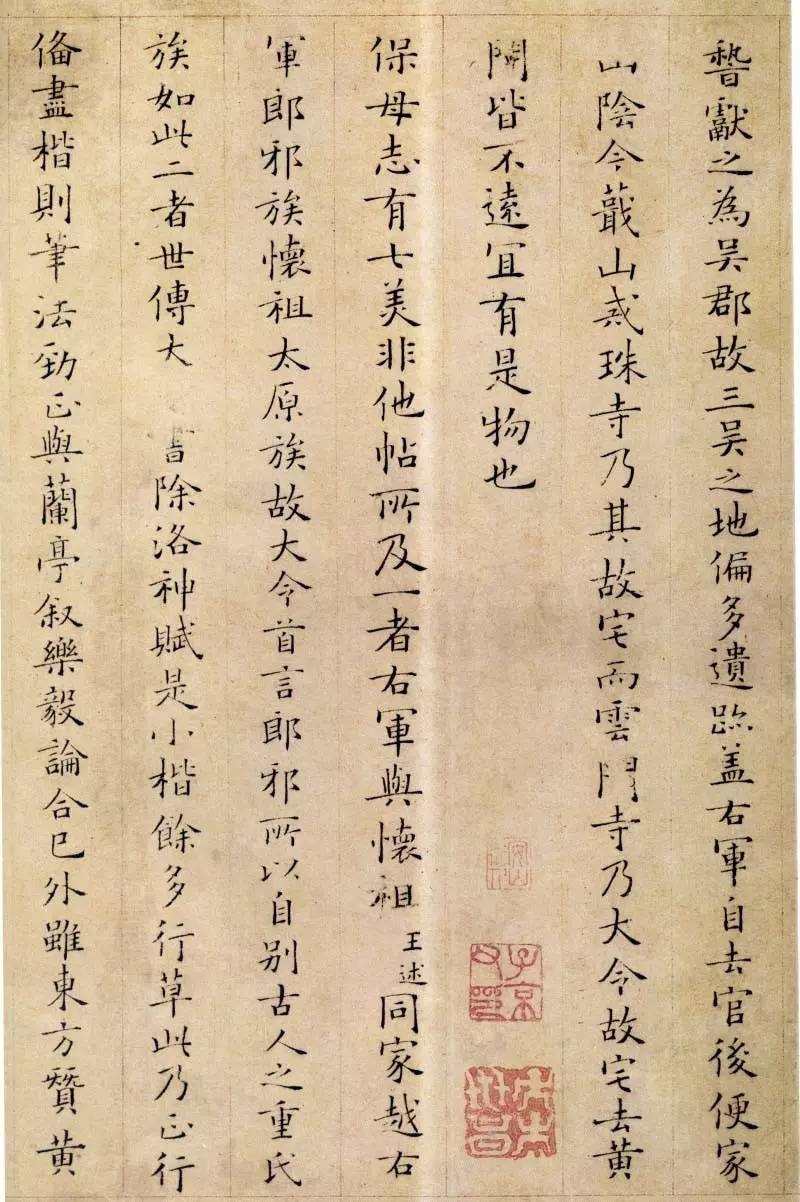 暬獻之為吴郡故三吴之地偏多遺跡盖右軍自去官後便家
山陰今蕺山戒珠寺乃其故宅而雲門寺乃大令故宅去黄
閍皆不遠宜有是物也
保母志有七美非他帖所及一者右軍與懷祖王述同家越右
軍郎邪族懷祖太原族故大令首言郎邪所以自别古人之重氏
族如此二者世傳大 書除洛神賦是小楷餘多行草此乃正行
俻盡楷則筆法勁正與蘭亭叙樂毅論合已外雖東方賛黄
子京